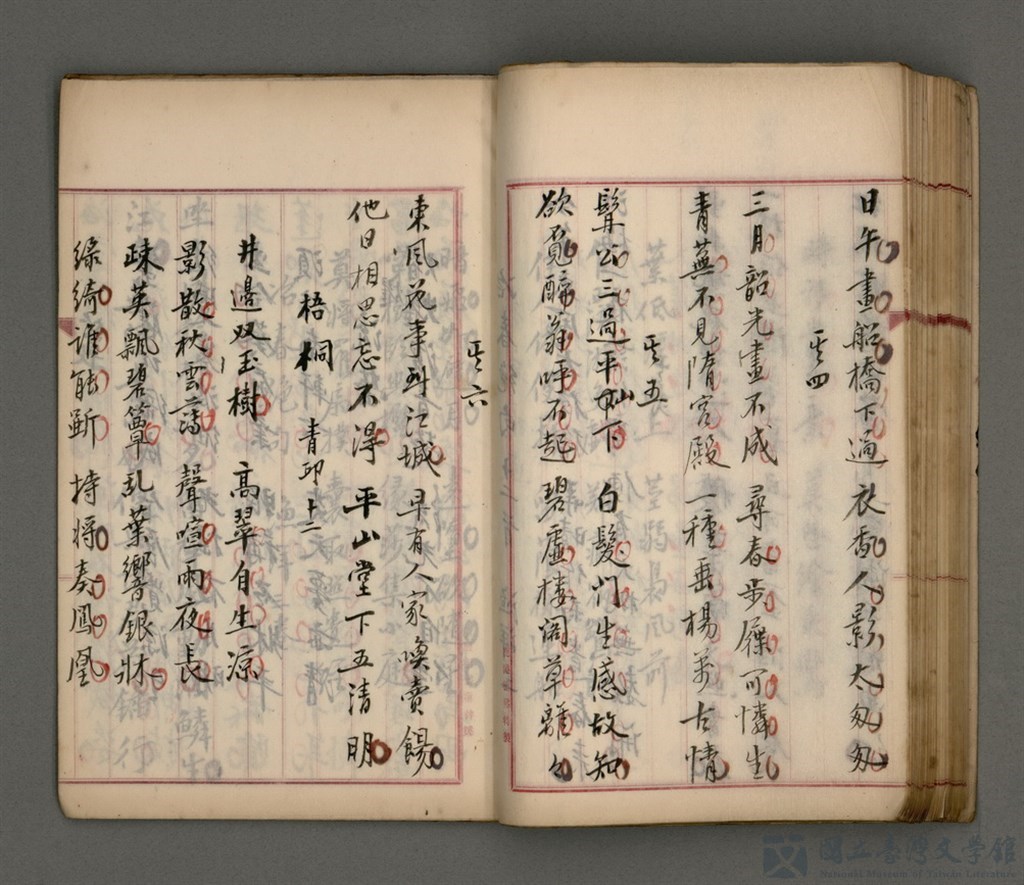 日午畫船橋下過 衣香人影太匆匆
其四
三月韶光畫不成 尋春步屧可憐生
青蕪不見隋宮殿 一種垂楊萬古情
其五
髯公三過平山下 白髮門生感故知
欲覓醉翁呼不起 碧虛樓閣草離々
其六
東風花事到江城 早有人家喚賣餳
他日相思忘不得 平山堂下五清明
梧桐 青邱 十二
井邊双玉樹 高翠自生涼
影散秋雲薄 聲喧雨夜長
疎英飄碧簟 乱葉響銀牀
綠綺誰能斲 持將奏鳳凰
國立臺灣文學館
National Museum of Taiwan Literature